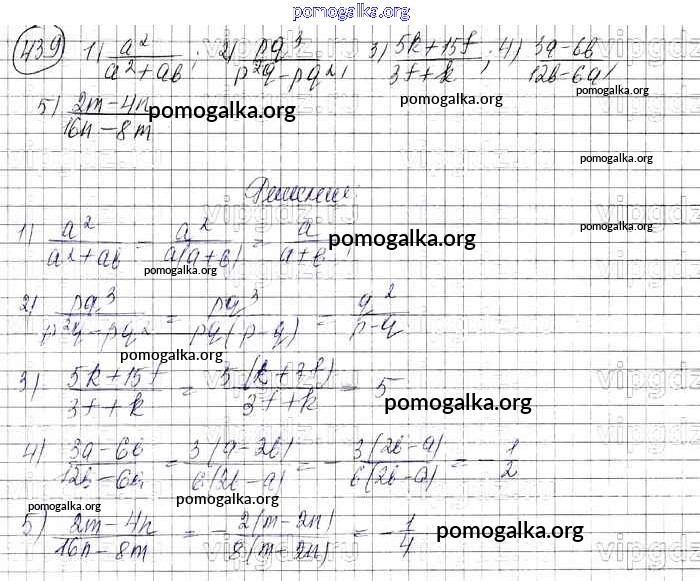 pomogalka.org
439 1) a²/(a²+ab); 2) pq³/(p²q-pq²); 3) (5k+15f)/(3f+k); 4) (3a-6b)/(12b-6a);
pomogalka.org
5) (2m-4n)/(16n-8m) pomogalka.org
pomogalka.org
Решение:
1) a²/(a²+ab) = a²/(a(a+b)) = a/(a+b); pomogalka.org
pomogalka.org
2) pq³/(p²q-pq²) = pq³/(pq(p-q)) = q²/(p-q)
pomogalka.org
3) (5k+15f)/(3f+k) = 5(k+3f)/(3f+k) = 5
pomogalka.org
4) (3a-6b)/(12b-6a) = 3(a-2b)/(6(2b-a)) = -3(2b-a)/(6(2b-a)) = -1/2
pomogalka.org pomogalka.org
5) (2m-4n)/(16n-8m) = -2(m-2n)/(8(m-2n)) = -1/4 pomogalka.org